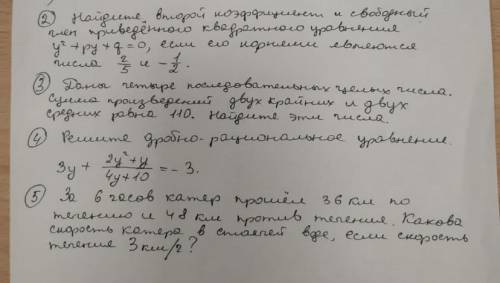 ② Найдите второй коэффициент и свободный
член приведённого квадратного уравнения
y² + py + q = 0, если его корнями являются
числа 2/5 и -1/2.
③ Даны четыре последовательных целых числа.
Сумма произведений двух крайних и двух
средних равна 110. Найдите эти числа.
④ Решите дробно-рациональное уравнение.
3y + (2y² + y)/(4y + 10) = -3.
⑤ За 6 часов катер прошёл 36 км по
течению и 48 км против течения. Какова
скорость катера в стоячей воде, если скорость
течения 3 км/ч?